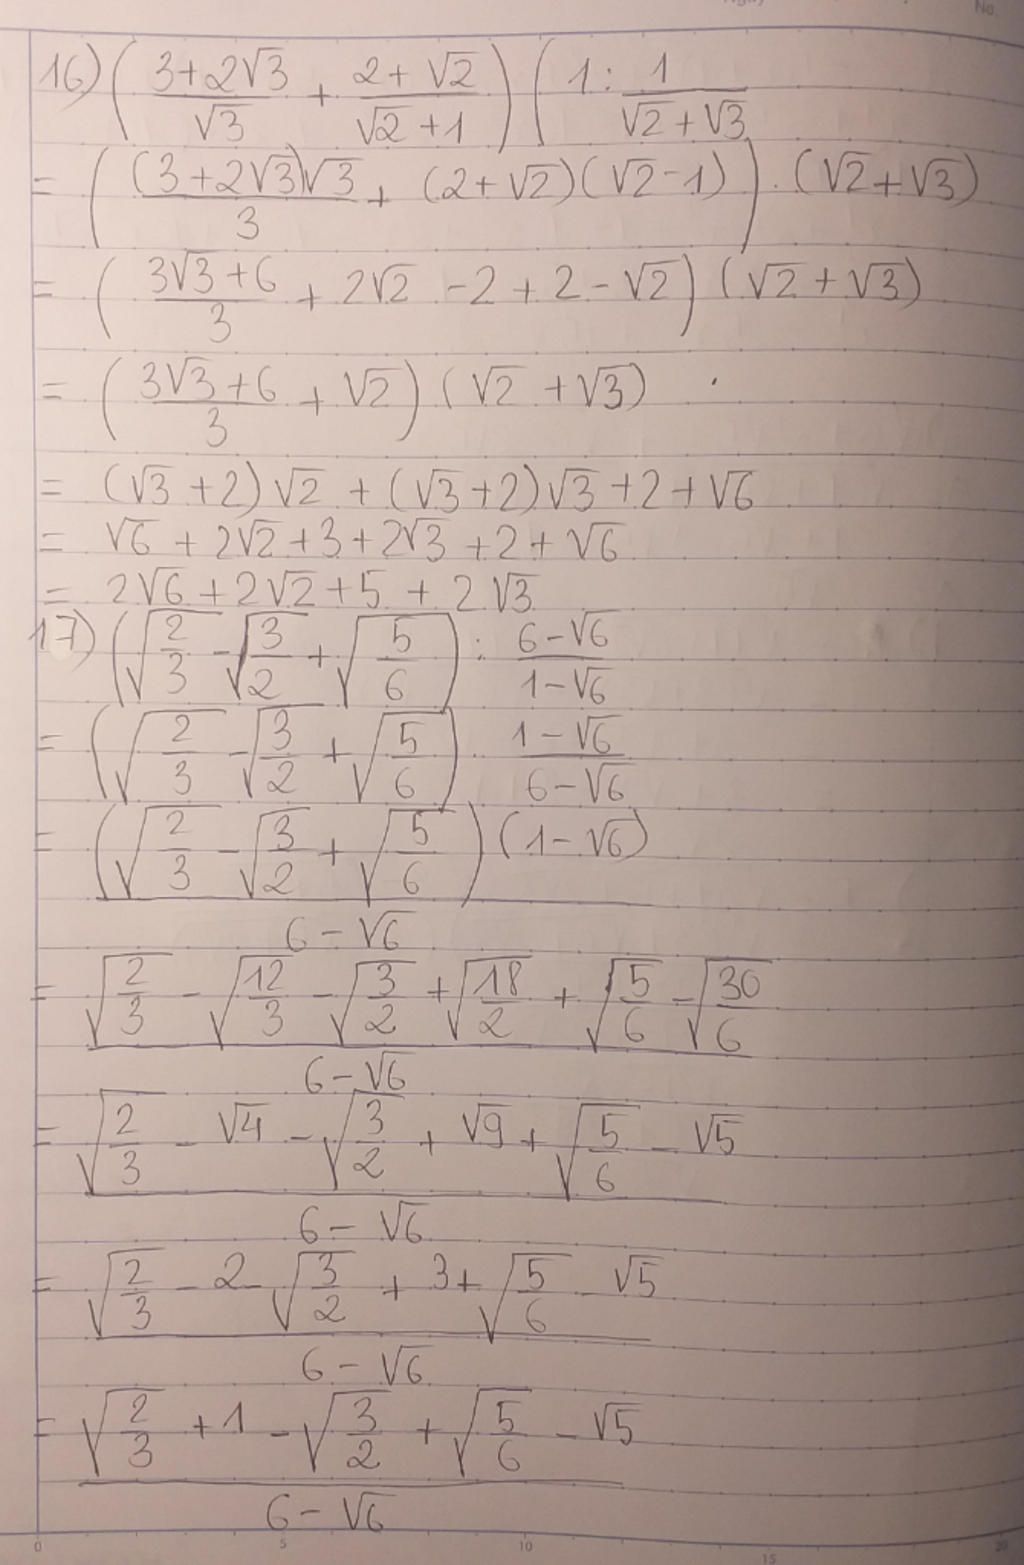 No.
16) ( (3+2√3)/√3 + (2+√2)/(√2+1) ) ( 1 : 1/(√2+√3)
= ( ((3+2√3)√3)/3 + (2+√2)(√2-1) ) . (√2+√3)
= ( (3√3+6)/3 + 2√2 - 2 + 2 - √2 ) (√2+√3)
= ( (3√3+6)/3 + √2 ) (√2 + √3) .
= (√3+2)√2 + (√3+2)√3 + 2 + √6
= √6 + 2√2 + 3 + 2√3 + 2 + √6
= 2√6 + 2√2 + 5 + 2√3
17) ( √(2/3) - √(3/2) + √(5/6) ) : (6-√6)/(1-√6)
= ( √(2/3) - √(3/2) + √(5/6) ) . (1-√6)/(6-√6)
= ( ( √(2/3) - √(3/2) + √(5/6) ) (1-√6) ) / (6-√6)
= ( √(2/3) - √(12/3) - √(3/2) + √(18/2) + √(5/6) - √(30/6) ) / (6-√6)
= ( √(2/3) - √4 - √(3/2) + √9 + √(5/6) - √5 ) / (6-√6)
= ( √(2/3) - 2 - √(3/2) + 3 + √(5/6) - √5 ) / (6-√6)
= ( √(2/3) + 1 - √(3/2) + √(5/6) - √5 ) / (6-√6)
0 5 10 15 20